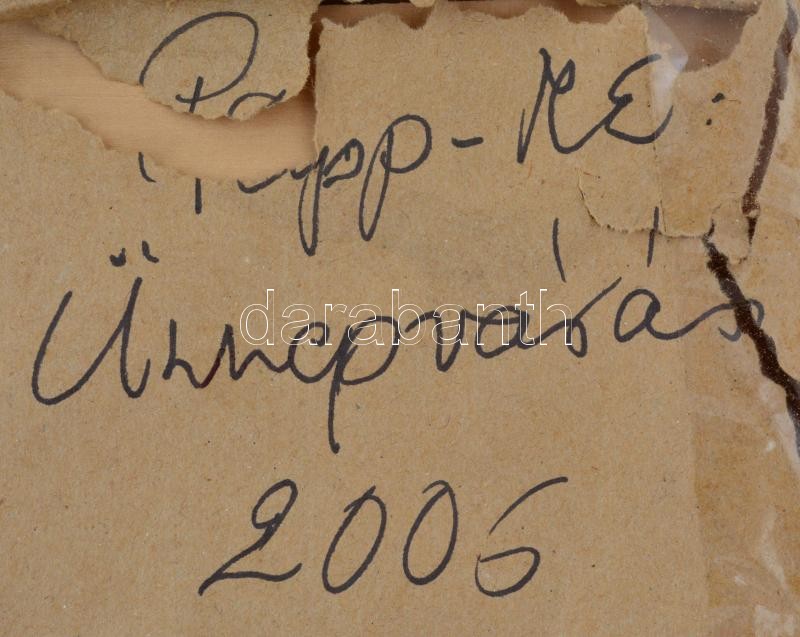 Papp-KE:
Ünnepvárás
2006
darabanth